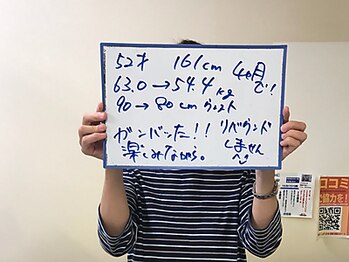 52才 161cm 4ヶ月で!
63.0→54.4kg
90→80cm ウエスト
ガンバッた!! リバウンドしません
楽しみながら。
ココミ
協力を!